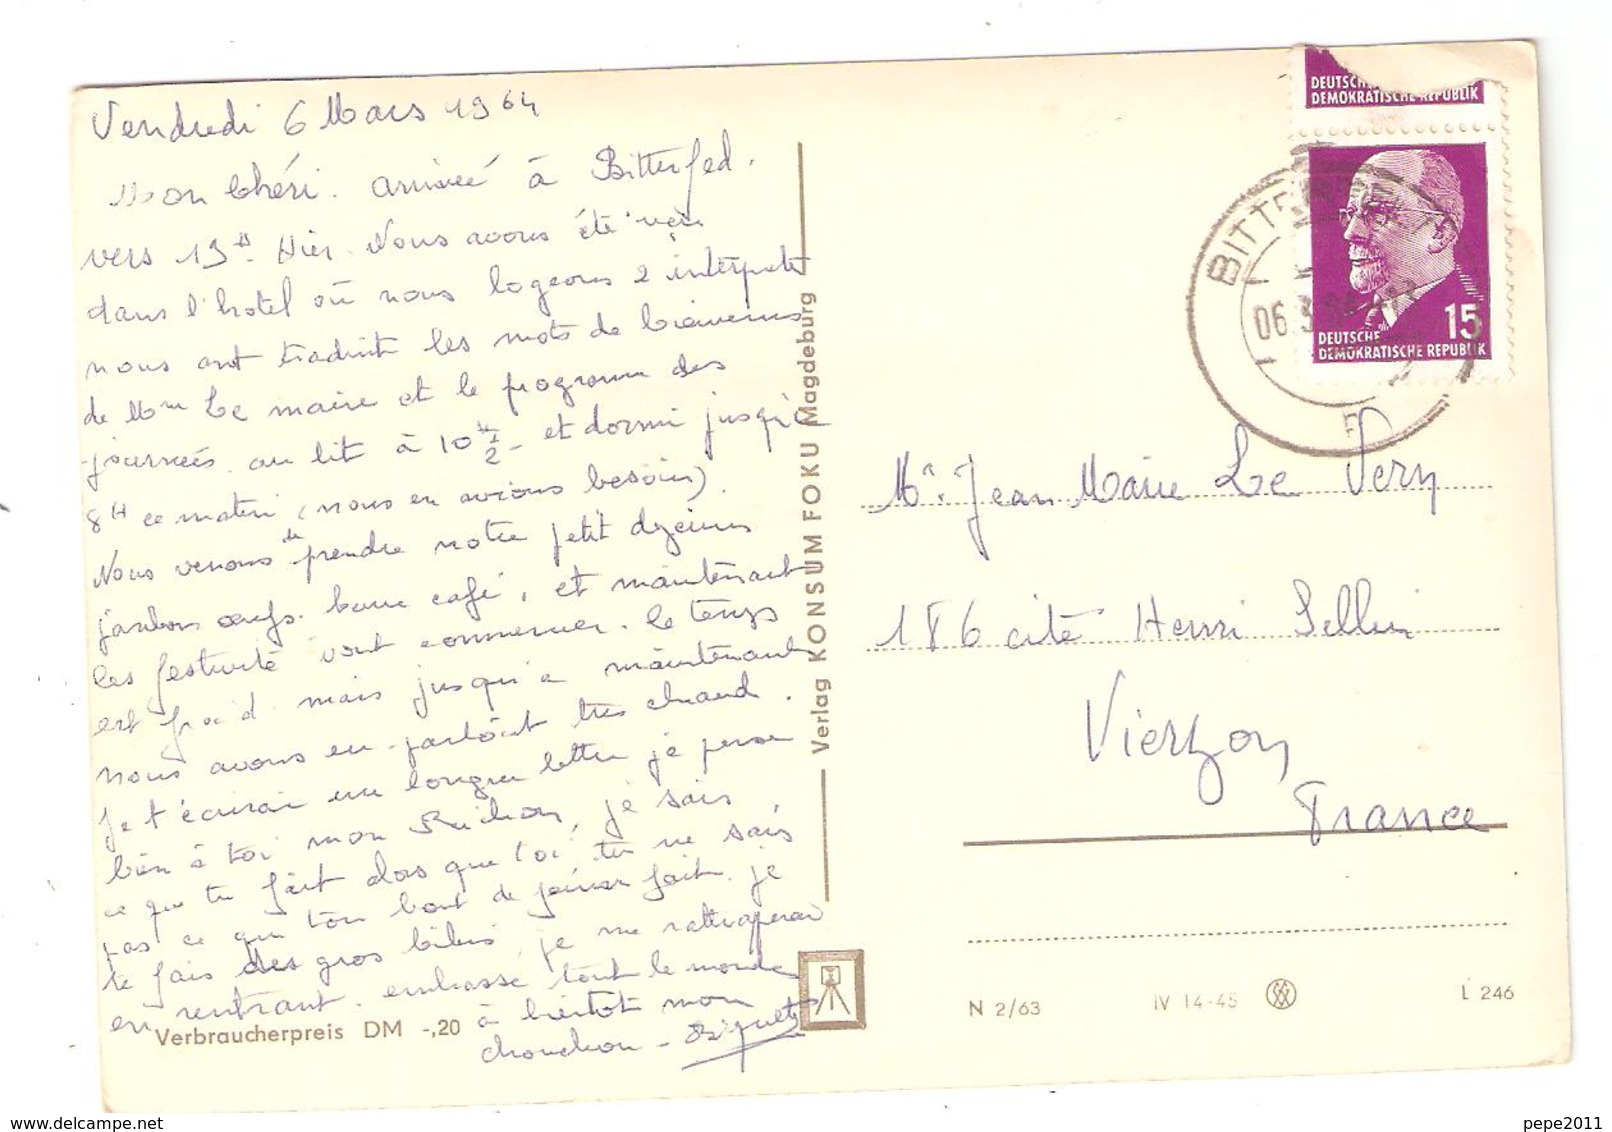 Vendredi 6 Mars 1964
Mon chéri. arrivée à Bitterfed.
vers 19H. Hier. Nous avons été reçu
dans l'hotel où nous logeons 2 interprete
nous ont traduit les mots de bienvenus
de Mr Le maire et le programme des
journées. au lit à 10H 1/2 - et dormi jusqu'a
8H ce matin (nous en avions besoin).
Nous venons de prendre notre petit dejeuns
jambon oeufs. bon café, et maintenant
les festivité vont commencer. le temps
est froid mais jusqu'a maintenant
nous avons eu partout très chaud.
Je t'écrirai une longue lettre je pense
bien à toi mon, je sais
ce que tu fait alors que toi, tu ne sais
pas ce que ton bout de fait. je
te fais des gros, je me rattraperai
en rentrant. embrasse tout le monde
à bientot mon
chouchou -
Verbraucherpreis DM -,20
Verlag KONSUM FOKU Magdeburg
DEUTSCHE
DEMOKRATISCHE REPUBLIK
15
DEUTSCHE
DEMOKRATISCHE REPUBLIK
BITTERFELD
06.3.64
Mr. Jean Marie Le Very
186 cité Henri Sellier
Vierzon
France
N 2/63
IV 14-45
L 246
pepe2011